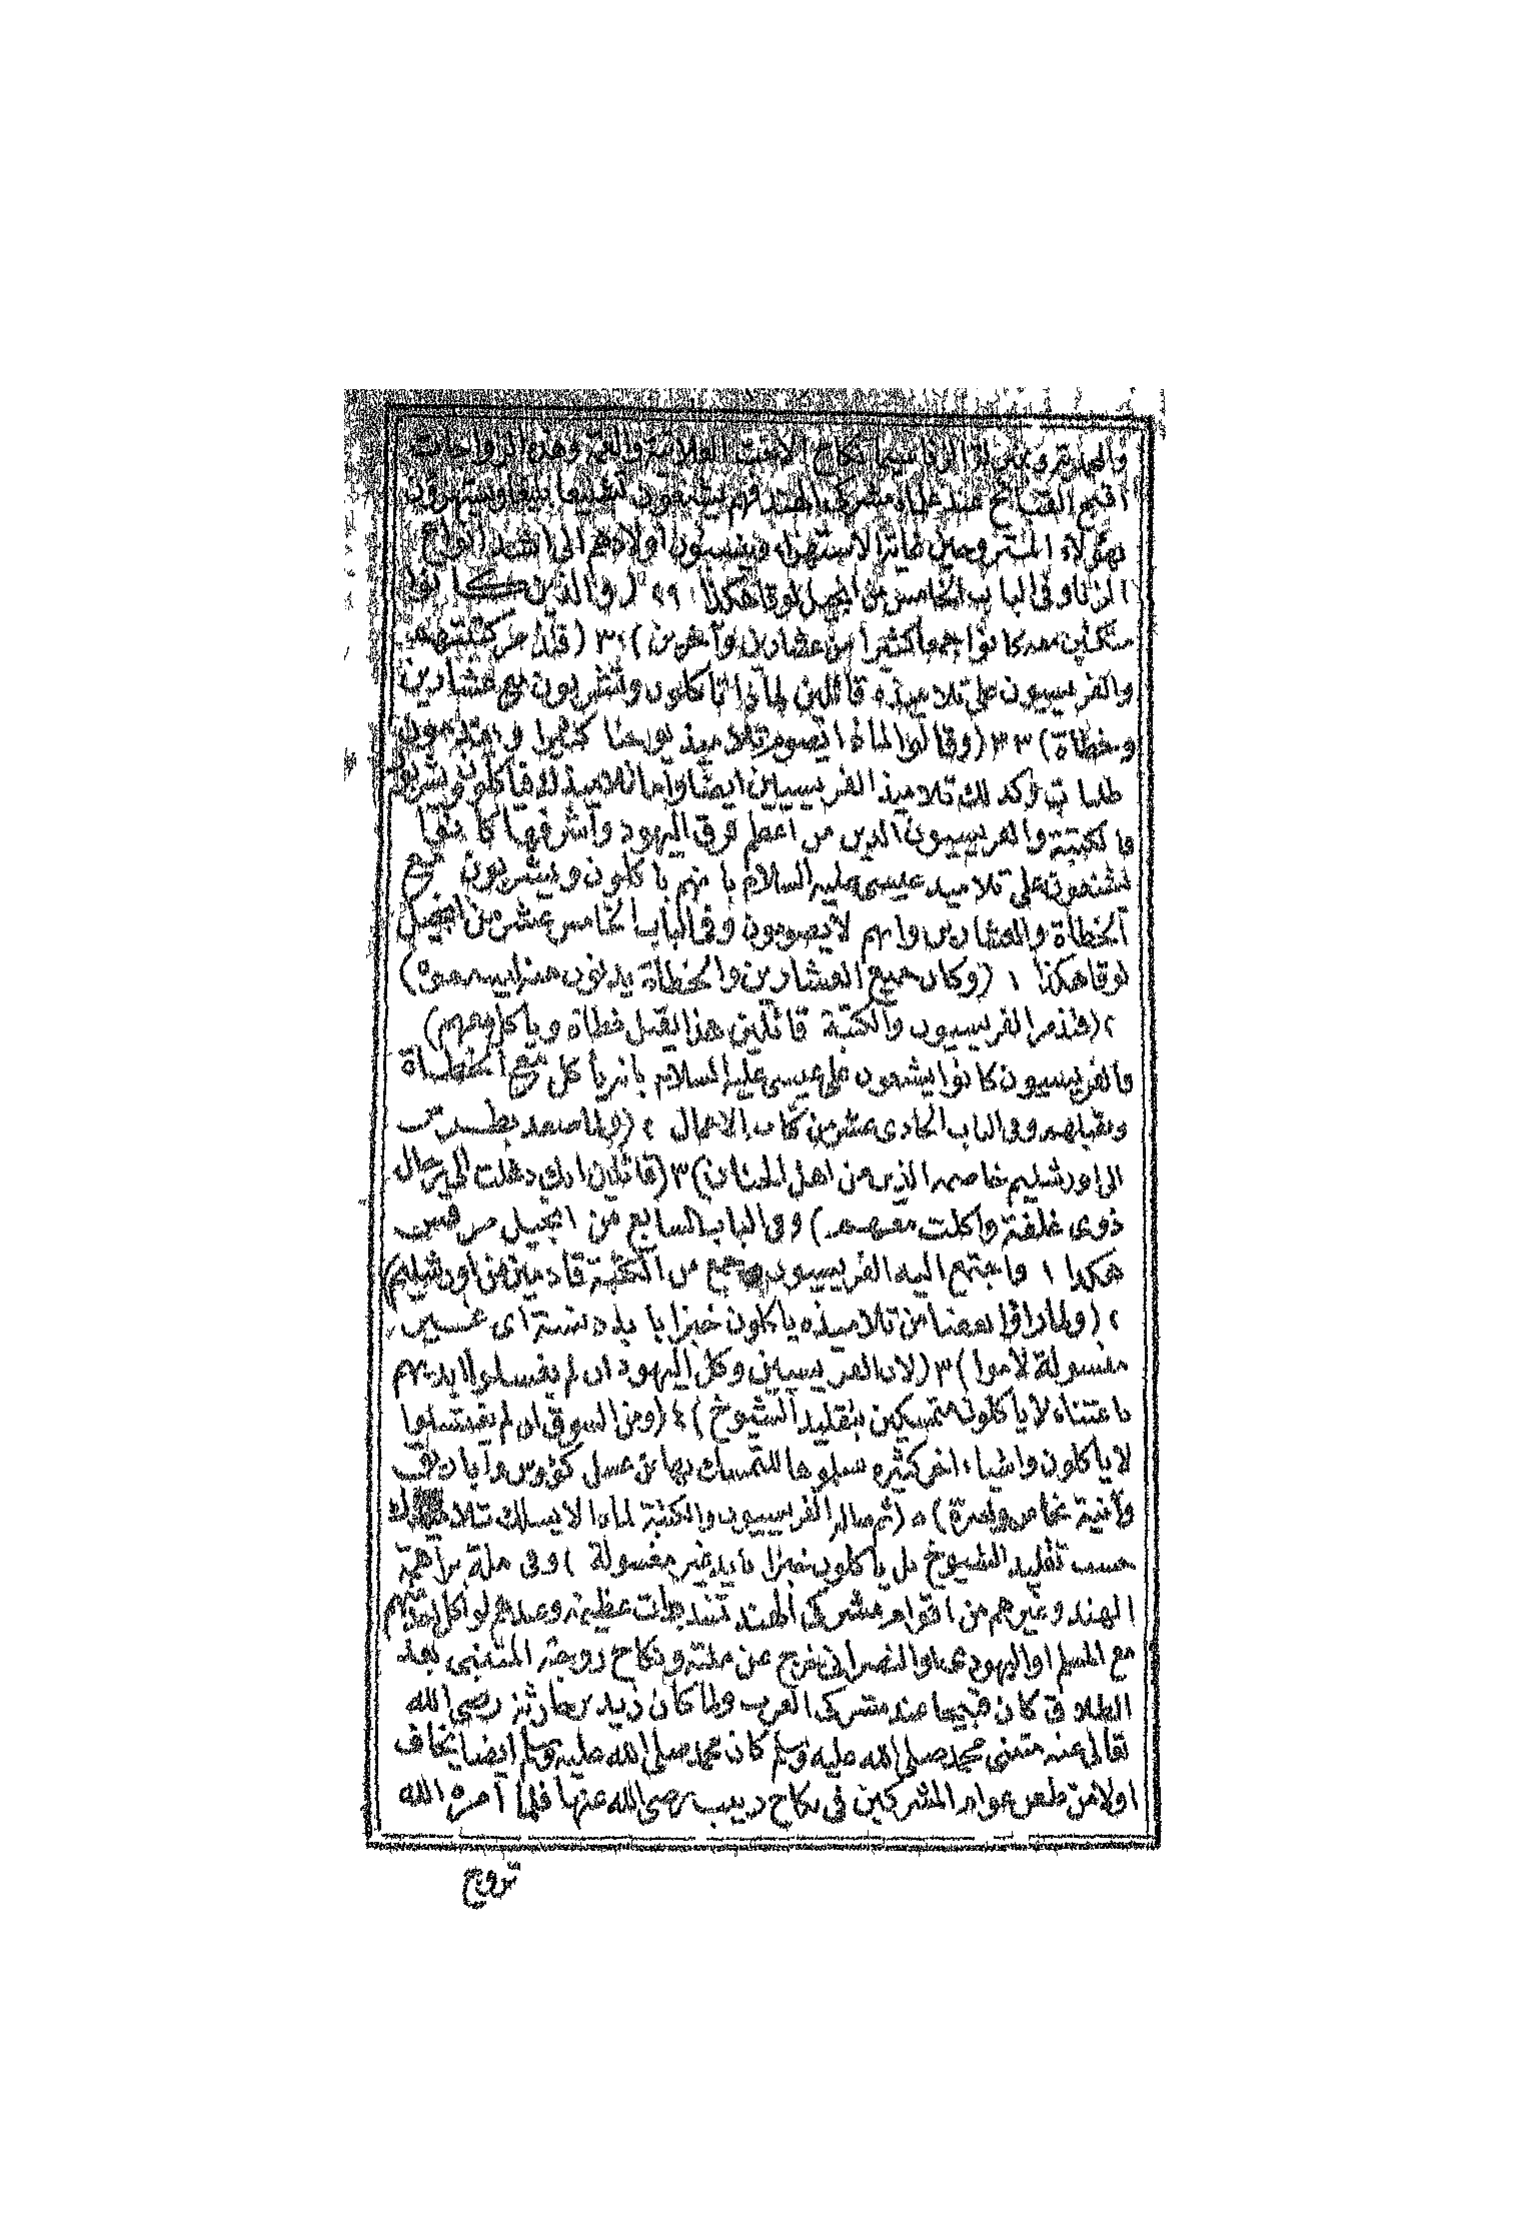 نكاح الاخت العلاتية والعمة وهذه الزواجات
اقبح القبائح عند علماء مشركى الهند فهم يشنعون تشنيعا بليغا ويستهزؤن
بهؤلاء المتزوجين غاية الاستهزاء وينسبون اولادهم الى اشد انواع
الزنا وفى الباب الخامس من انجيل لوقا هكذا ٢٩ (والذين كانوا
متكئين معه كانوا جمعا كثيرا من عشارين وآخرين) ٣٠ (فتذمر كتبتهم
والفريسيون على تلاميذه قائلين لماذا تأكلون وتشربون مع عشارين
وخطاة) ٣٣ (وقالوا لماذا تصوم تلاميذ يوحنا كثيرا ويقدمون
طلبات وكذلك تلاميذ الفريسيين ايضا واما تلاميذك فيأكلون ويشربون
فالكتبة والفريسيون الذين من اعظم فرق اليهود واشرفها كانوا
يشنعون على تلاميذ عيسى عليه السلام بانهم يأكلون ويشربون مع
الخطاة والعشارين وانهم لا يصومون وفى الباب الخامس عشر من انجيل
لوقا هكذا ١ (وكان جميع العشارين والخطاة يدنون منه ليسمعوه)
٢ (فتذمر الفريسيون والكتبة قائلين هذا يقبل خطاة ويأكل معهم)
فالفريسيون كانوا يشنعون على عيسى عليه السلام بانه يأكل مع الخطاة
ويقبلهم وفى الباب الحادى عشر من كتاب الاعمال ٢ (ولما صعد بطرس
الى اورشليم خاصمه الذين من اهل الختان) ٣ (قائلين انك دخلت الى رجال
ذوى غلفة واكلت معهم) وفى الباب السابع من انجيل مرقس
هكذا ١ واجتمع اليه الفريسيون وجمع من الكتبة قادمين من اورشليم)
٢ (ولما رأوا بعضا من تلاميذه يأكلون خبزا بايد دنسة اى غير
مغسولة لاموا) ٣ (لان الفريسيين وكل اليهود ان لم يغسلوا ايديهم
باعتناء لا يأكلون متمسكين بتقليد الشيوخ) ٤ (ومن السوق ان لم يغتسلوا
لا يأكلون واشياء اخر كثيرة تسلموها للتمسك بها من غسل كؤوس واباريق
وآنية نحاس واسرة) ٥ (ثم سأله الفريسيون والكتبة لماذا لا يسلك تلاميذك
حسب تقليد الشيوخ بل يأكلون خبزا بايد غير مغسولة) وفى ملة براهمة
الهند وغيرهم من اقوام مشركى الهند تشديدات عظيمة وعندهم لو اكل احد منهم
مع المسلم او اليهودى او النصرانى خرج عن ملته ونكاح زوجة المتبنى بعد
الطلاق كان قبيحا عند مشركى العرب ولما كان زيد بن حارثة رضى الله
تعالى عنه متبنى محمد صلى الله عليه وسلم كان محمد صلى الله عليه وسلم ايضا يخاف
اولا من طعن عوام المشركين فى نكاح زينب رضى الله عنها فلما امره الله
تزوج